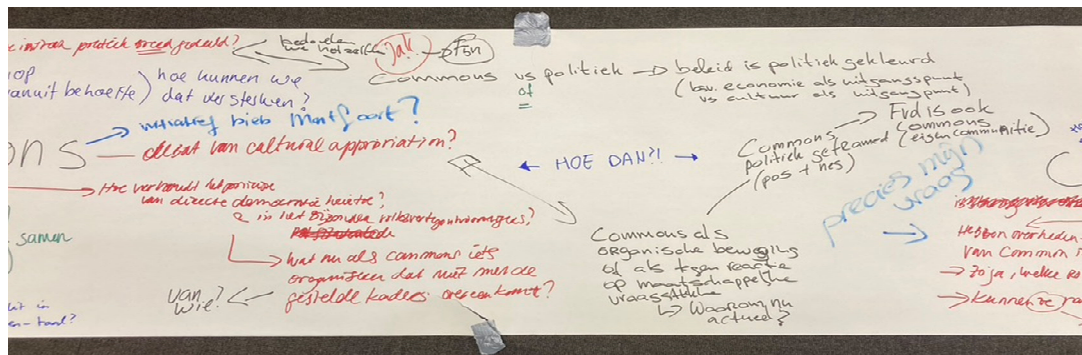 politiek meegeduld?
bedoelen
we hetzelfde
Jak!
Fijn
Commons vs politiek → beleid is politiek gekleurd
of
=
(bv. economie als uitgangspunt
vs cultuur als uitgangspunt)
op
vanuit behoefte)
hoe kunnen we
dat versterken?
→ initiatief bieb Montfoort?
ons
debat van cultural appropriation?
← HOE DAN?! →
Commons,
politiek geframed
(pos + neg)
→ FvD is ook
Commons
(eigen communitie)
precies mijn
vraag
→ Hoe verhoudt het
van directe democratie hierin?
in het bijzonder volksvertegenwoordigers?
samen
→ Wat nu als commons iets
organiseren dat niet met de
gestelde kaders overeenkomt?
van
wie?
Commons als
organische beweging
of als tegenreactie
op maatschappelijke
vraagstukken
↳ Waarom nu
actueel?
Hebben overheden
van Common
→ Zo ja, welke
→ Kunnen ze
uit in